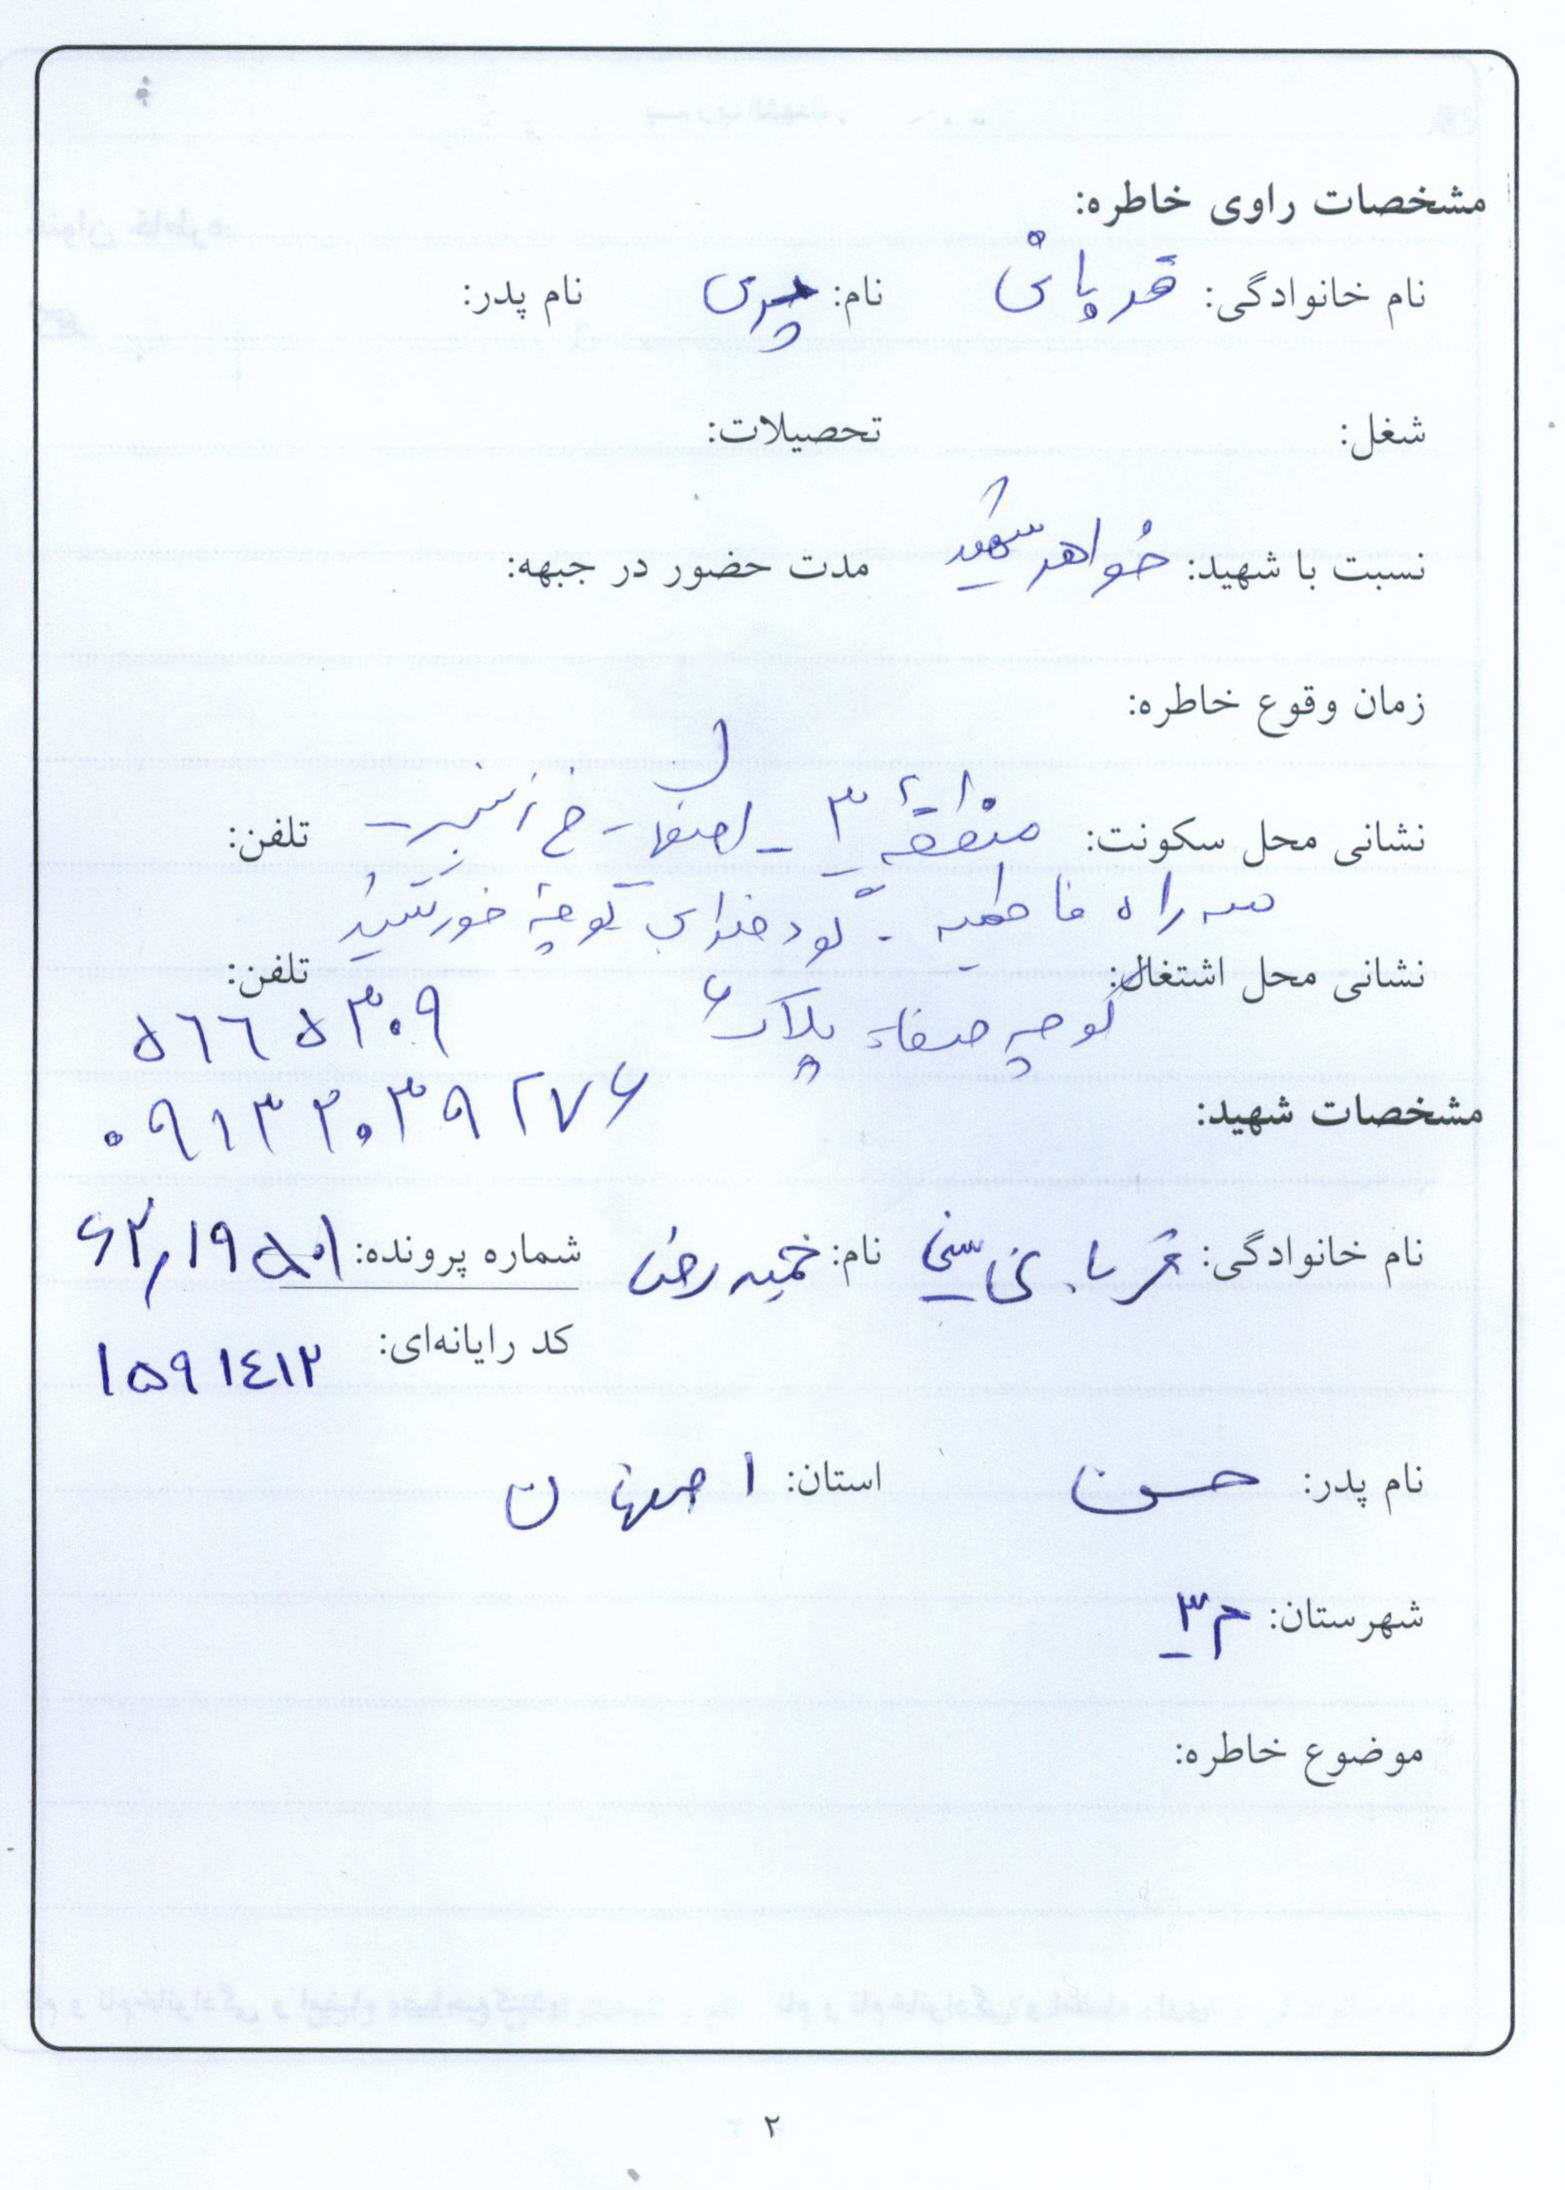 مشخصات راوی خاطره:
نام خانوادگی: قربانی نام: پری نام پدر:
شغل: تحصیلات:
نسبت با شهید: خواهر شهید مدت حضور در جبهه:
زمان وقوع خاطره:
نشانی محل سکونت: منطقه ۳ - اصفهان - خ تلفن:
سه راه فاطمیه - کوچه خورشید
نشانی محل اشتغال: تلفن:
کوچه صفا پلاک ۶ ۵۶۶۵۳۰۹
۰۹۱۳۲۰۳۹۲۷۶
مشخصات شهید:
نام خانوادگی: قربانی سینی نام: حمیدرضا شماره پرونده: ۶۲,۱۹۵۰۱
کد رایانه‌ای: ۱۵۹۱۴۱۲
نام پدر: حسن استان: اصفهان
شهرستان: م۳
موضوع خاطره:
۲